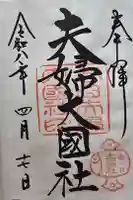 奉拝
夫婦大國社
令和八年 四月十七日